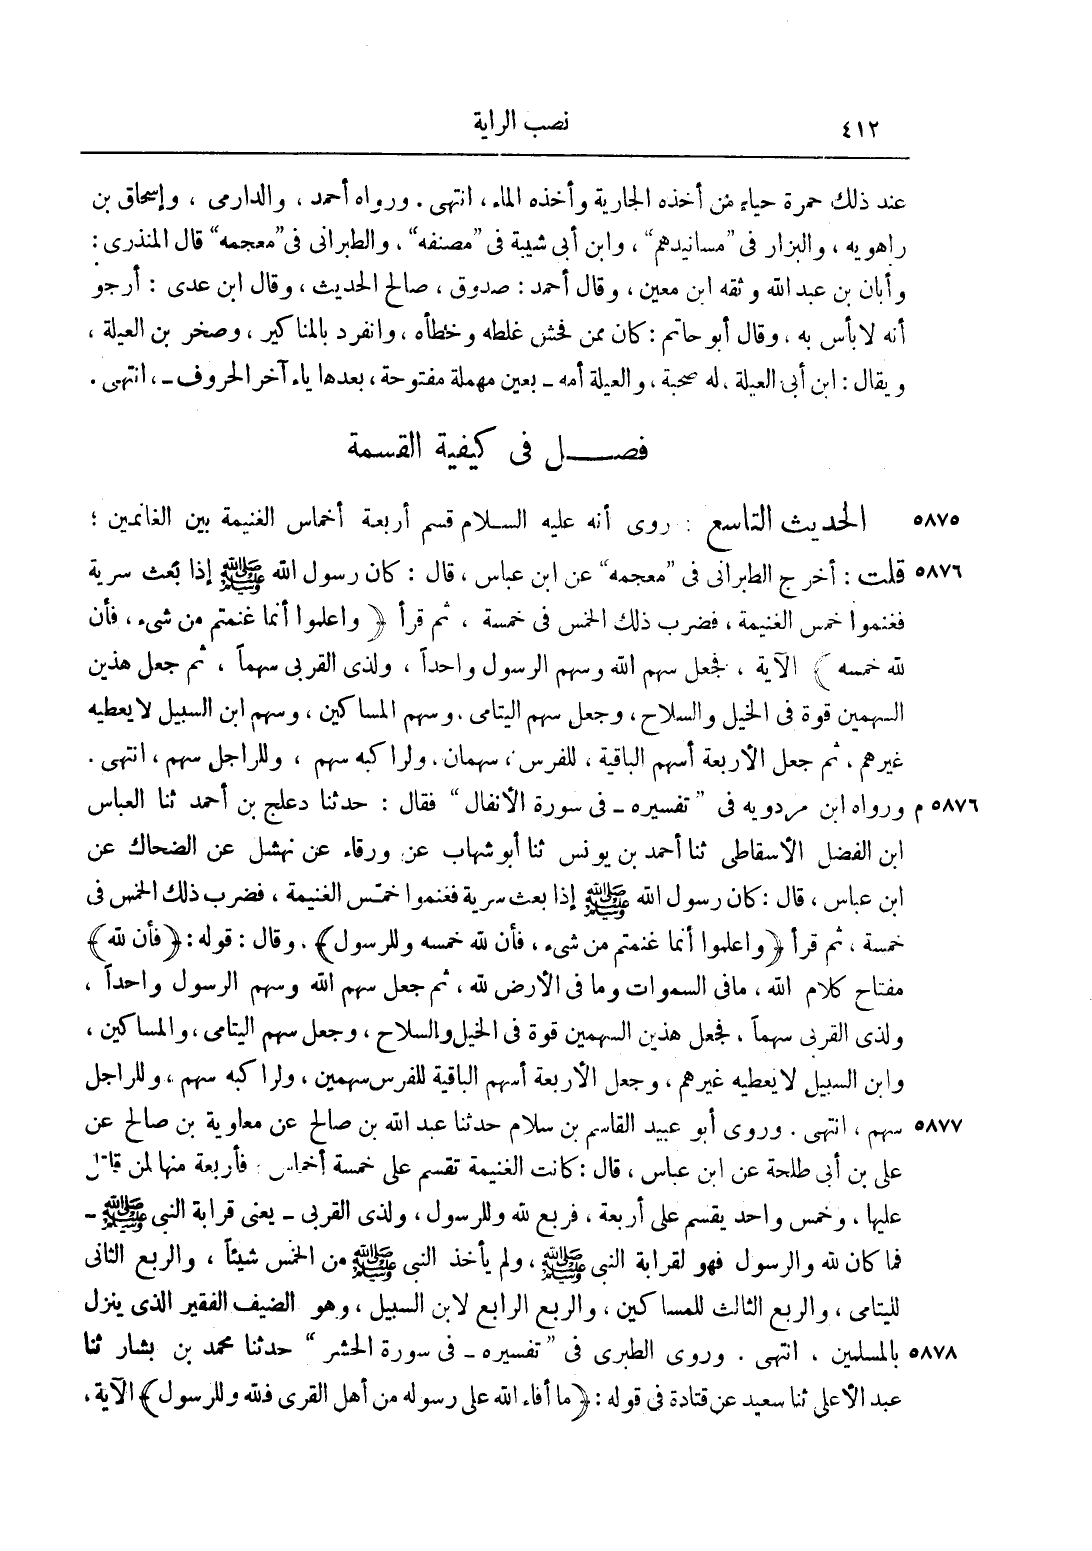 ٤١٢ نصب الراية
عند ذلك حمرة حياء من أخذه الجارية وأخذه الماء ، انتهى . ورواه أحمد ، والدارمى ، وإسحاق بن
راهويه ، والبزار فى "مسانيدهم" ، وابن أبى شيبة فى "مصنفه" ، والطبرانى فى "معجمه" قال المنذرى :
وأبان بن عبد الله وثقه ابن معين ، وقال أحمد : صدوق ، صالح الحديث ، وقال ابن عدى : أرجو
أنه لا بأس به ، وقال أبو حاتم : كان ممن فحش غلطه وخطأه ، وانفرد بالمناكير ، وصخر بن العيلة ،
ويقال : ابن أبى العيلة ، له صحبة ، والعيلة أمه ـ بعين مهملة مفتوحة ، بعدها ياء آخر الحروف ـ ، انتهى .
فصـــل فى كيفية القسمة
٥٨٧٥ الحديث التاسع : روى أنه عليه السلام قسم أربعة أخماس الغنيمة بين الغانمين ؛
٥٨٧٦ قلت : أخرج الطبرانى فى "معجمه" عن ابن عباس ، قال : كان رسول الله ﷺ إذا بعث سرية
فغنموا خمس الغنيمة ، فضرب ذلك الخمس فى خمسة ، ثم قرأ ﴿ واعلموا أنما غنمتم من شىء ، فأن
لله خمسه ﴾ الآية ، فجعل سهم الله وسهم الرسول واحداً ، ولذى القربى سهماً ، ثم جعل هذين
السهمين قوة فى الخيل والسلاح ، وجعل سهم اليتامى . وسهم المساكين ، وسهم ابن السبيل لا يعطيه
غيرهم ، ثم جعل الأربعة أسهم الباقية ، للفرس ، سهمان . ولراكبه سهم ، وللراجل سهم ، انتهى .
٥٨٧٦ م ورواه ابن مردويه فى " تفسيره ـ فى سورة الأنفال " فقال : حدثنا دعلج بن أحمد ثنا العباس
ابن الفضل الأسقاطى ثنا أحمد بن يونس ثنا أبو شهاب عن ورقاء عن نهشل عن الضحاك عن
ابن عباس ، قال : كان رسول الله ﷺ إذا بعث سرية فغنموا خمس الغنيمة ، فضرب ذلك الخمس فى
خمسة ، ثم قرأ ﴿ واعلموا أنما غنمتم من شىء ، فأن لله خمسه وللرسول ﴾ . وقال : قوله : ﴿ فأن لله ﴾
مفتاح كلام الله ، مافى السموات وما فى الأرض لله ، ثم جعل سهم الله وسهم الرسول واحداً ،
ولذى القربى سهماً ، فجعل هذين السهمين قوة فى الخيل والسلاح ، وجعل سهم اليتامى ، والمساكين ،
وابن السبيل لا يعطيه غيرهم ، وجعل الأربعة أسهم الباقية للفرس سهمين ، ولراكبه سهم ، وللراجل
٥٨٧٧ سهم ، انتهى . وروى أبو عبيد القاسم بن سلام حدثنا عبد الله بن صالح عن معاوية بن صالح عن
على بن أبى طلحة عن ابن عباس ، قال : كانت الغنيمة تقسم على خمسة أخماس : فأربعة منها لمن قاتل
عليها ، وخمس واحد يقسم على أربعة ، فربع لله وللرسول ، ولذى القربى ـ يعنى قرابة النبى ﷺ ـ
فما كان لله والرسول فهو لقرابة النبى ﷺ ، ولم يأخذ النبى ﷺ من الخمس شيئاً ، والربع الثانى
لليتامى ، والربع الثالث للمساكين ، والربع الرابع لابن السبيل ، وهو الضيف الفقير الذى ينزل
٥٨٧٨ بالمسلمين ، انتهى . وروى الطبرى فى " تفسيره ـ فى سورة الحشر " حدثنا محمد بن بشار ثنا
عبد الأعلى ثنا سعيد عن قتادة فى قوله : ﴿ ما أفاء الله على رسوله من أهل القرى فلله وللرسول ﴾ الآية ،